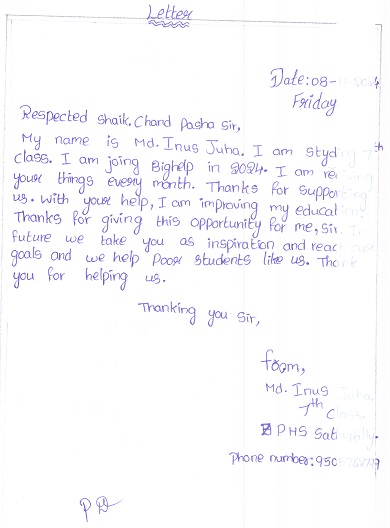 Letter
Date:08-
Friday
Respected shaik. Chand Pasha Sir,
My name is Md. Inus Juha. I am styd
class. I am joing Bighelp in 2024. I am
your things every month. Thanks for supporting
us. With your help, I am improving my educat
Thanks for giving this opportunity for me, sir. In
future we take you as inspiration and reach our
goals and we help poor students like us. Thank
you for helping us.
Thanking you Sir,
from,
Md. Inus Juha.
7th Class
PHS Sat
Phone number:950